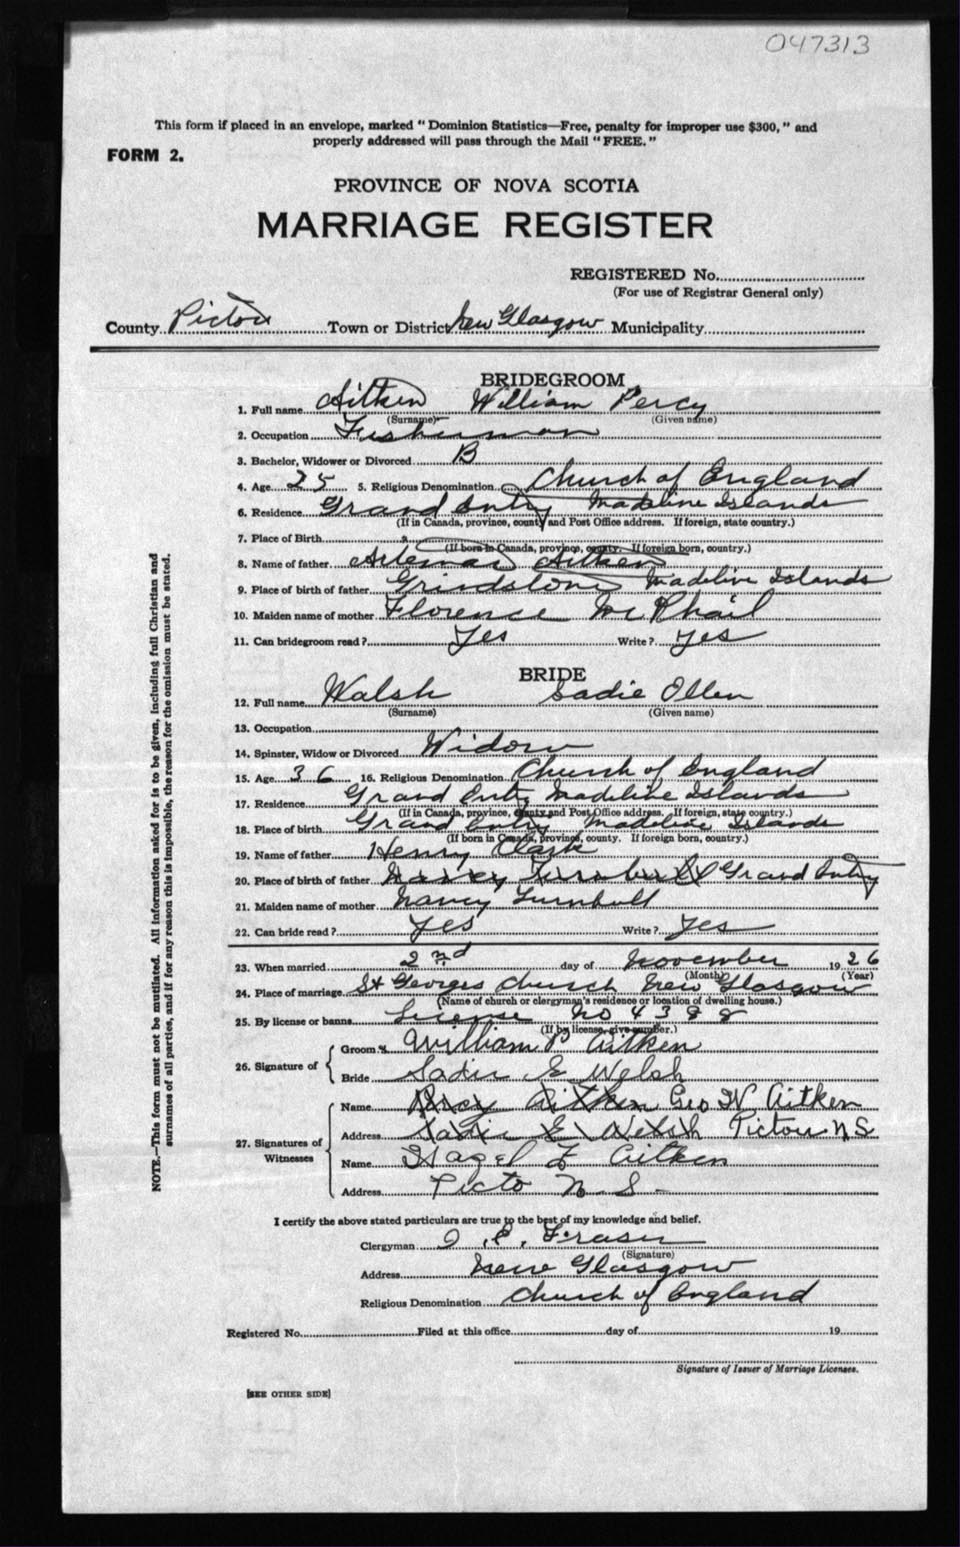 047313
This form if placed in an envelope, marked "Dominion Statistics—Free, penalty for improper use $300," and
properly addressed will pass through the Mail "FREE."
FORM 2.
PROVINCE OF NOVA SCOTIA
MARRIAGE REGISTER
REGISTERED No.
(For use of Registrar General only)
County Pictou Town or District New Glasgow Municipality
BRIDEGROOM
1. Full name Aitken William Percy
(Surname) (Given name)
2. Occupation Fisherman
3. Bachelor, Widower or Divorced B
4. Age 25 5. Religious Denomination Church of England
6. Residence Grand Entry Madeline Islands
(If in Canada, province, county and Post Office address. If foreign, state country.)
7. Place of Birth "
(If born in Canada, province, county. If foreign born, country.)
8. Name of father Artemas Aitken
9. Place of birth of father Grindstone Madeline Islands
10. Maiden name of mother Florence McPhail
11. Can bridegroom read? Yes Write? Yes
BRIDE
12. Full name Walsh Sadie Ellen
(Surname) (Given name)
13. Occupation
14. Spinster, Widow or Divorced Widow
15. Age 36 16. Religious Denomination Church of England
17. Residence Grand Entry Madeline Islands
(If in Canada, province, county and Post Office address. If foreign, state country.)
18. Place of birth Grand Entry Madeline Islands
(If born in Canada, province, county. If foreign born, country.)
19. Name of father Henry Clark
20. Place of birth of father Nancy Turnbull Grand Entry
21. Maiden name of mother Nancy Turnbull
22. Can bride read? Yes Write? Yes
23. When married 2nd day of November 1926
(Month) (Year)
24. Place of marriage St Georges Church New Glasgow
(Name of church or clergyman's residence or location of dwelling house.)
25. By license or banns License No 4388
(If by license, give number.)
26. Signature of
Groom William P Aitken
Bride Sadie E Welsh
27. Signatures of Witnesses
Name Percy Aitken Geo W Aitken
Address Sadie E Welsh Pictou N S
Name Hazel F Aitken
Address Picto N. S.
I certify the above stated particulars are true to the best of my knowledge and belief.
Clergyman Fraser
(Signature)
Address New Glasgow
Religious Denomination Church of England
Registered No. Filed at this office day of 19
Signature of Issuer of Marriage Licenses.
[SEE OTHER SIDE]
NOTE.—This form must not be mutilated. All information asked for is to be given, including full Christian and
surnames of all parties, and if for any reason this is impossible, the reason for the omission must be stated.